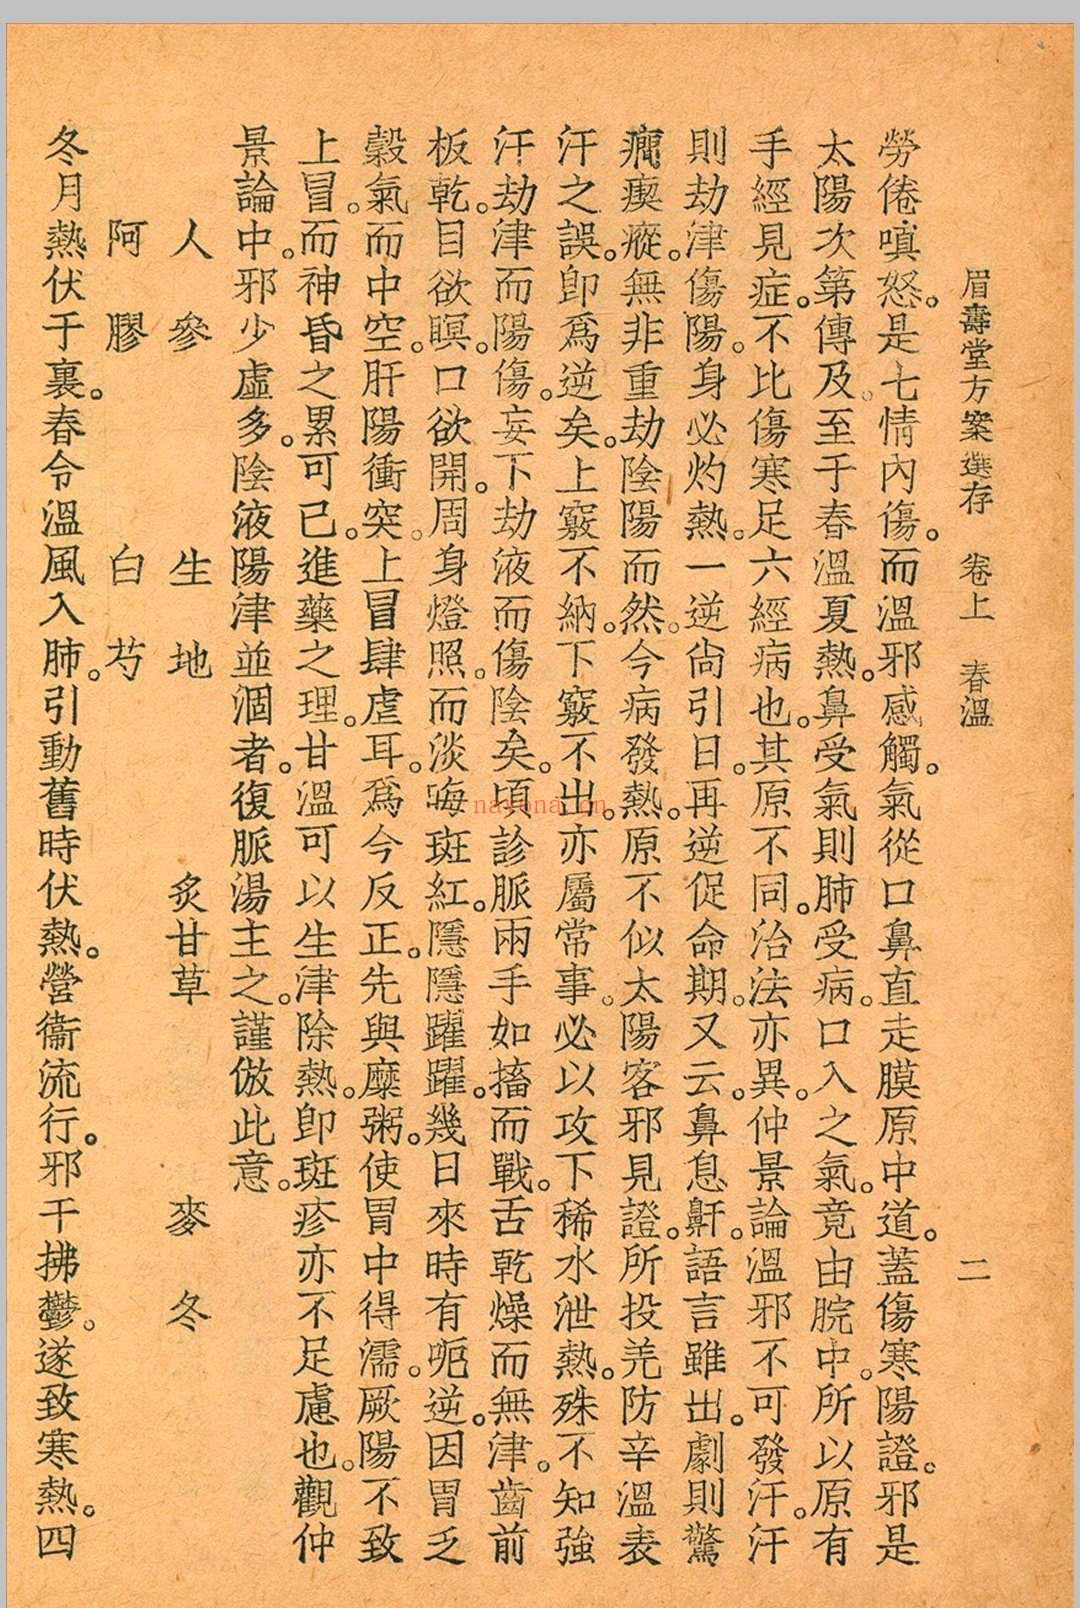 眉壽堂方案選存　卷上　春溫　二
勞倦嗔怒。是七情內傷。而溫邪感觸。氣從口鼻直走膜原中道。蓋傷寒陽證。邪是
太陽次第傳及。至于春溫夏熱。鼻受氣則肺受病。口入之氣。竟由脘中。所以原有
手經見症。不比傷寒足六經病也。其原不同。治法亦異。仲景論溫邪不可發汗。汗
則劫津傷陽。身必灼熱。一逆尙引日。再逆促命期。又云。鼻息鼾。語言雖出。劇則驚
癎瘈瘲。無非重劫陰陽而然。今病發熱。原不似太陽客邪見證。所投羌防辛溫表
汗之誤。卽爲逆矣。上竅不納。下竅不出。亦屬常事。必以攻下稀水泄熱。殊不知強
汗劫津而陽傷。妄下劫液而傷陰矣。頃診脈兩手如搐而戰。舌乾燥而無津。齒前
板乾。目欲瞑。口欲開。周身燈照。而淡晦斑紅。隱隱躍躍。幾日來時有呃逆。因胃乏
穀氣而中空。肝陽衝突。上冒肆虐耳。爲今反正。先與糜粥。使胃中得濡。厥陽不致
上冒。而神昏之累可已。進藥之理。甘溫可以生津除熱。卽斑疹亦不足慮也。觀仲
景論中。邪少虛多。陰液陽津並涸者。復脈湯主之。謹倣此意。
人參　生地　炙甘草　麥冬
阿膠　白芍
冬月熱伏于裏。春令溫風入肺。引動舊時伏熱。營衞流行。邪干拂鬱。遂致寒熱。四
nayona.cn